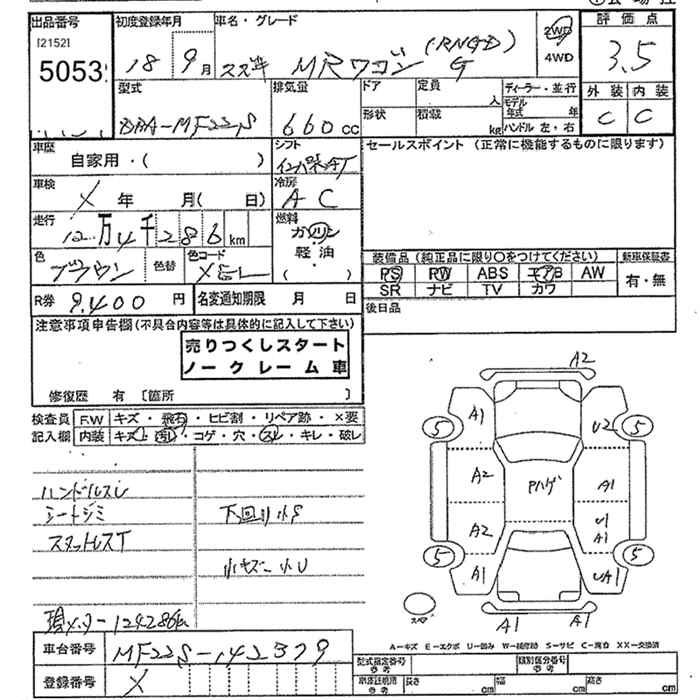 出品番号 初度登録年月 車名・グレード 2WD 評価点
[2152]
5053 18 9月 スズキ MRワゴン (RNGD) G 4WD 3.5
型式 排気量 ドア 定員 人 ディーラー・並行 外装 内装
DBA-MF22S 660cc 形状 積載 kg モデル年式 年 C C
ハンドル 左・右
車歴 シフト セールスポイント (正常に機能するものに限ります)
自家用・( )
車検 冷房
X 年 月( 日) AC
走行 燃料
12万4千286km ガソリン
軽油
( )
色 色替 色コード 装備品 (純正品に限り○をつけてください) 新車保証書
ブラウン PS PW ABS エアB AW 有・無
SR ナビ TV カワ
R券 9.400円 名変通知期限 月 日 後日品
注意事項申告欄(不具合内容等は具体的に記入して下さい)
売りつくしスタート
ノークレーム車
修復歴 有 〔箇所 〕
検査員 F.W キズ・飛石・ヒビ割・リペア跡・×要
記入欄 内装 キズ・汚レ・コゲ・穴・スレ・キレ・破レ
ハンドルスレ
シートシミ 下回り小S
スタットレスT
小キズ 小U
現メーター 124286km
車台番号 MF22S-142379
登録番号 X
A2
A1 U2
5 5
A2 Pハゲ A1
A2 U1
A1
5 5
A1 UA1
スペア A1 A1
A-キズ E-エクボ U-凹み W-補修跡 S-サビ C-腐食 XX-交換済
型式指定番号 参考 類別区分番号
車庫証明用 参考 長さ cm 幅 cm 高さ cm